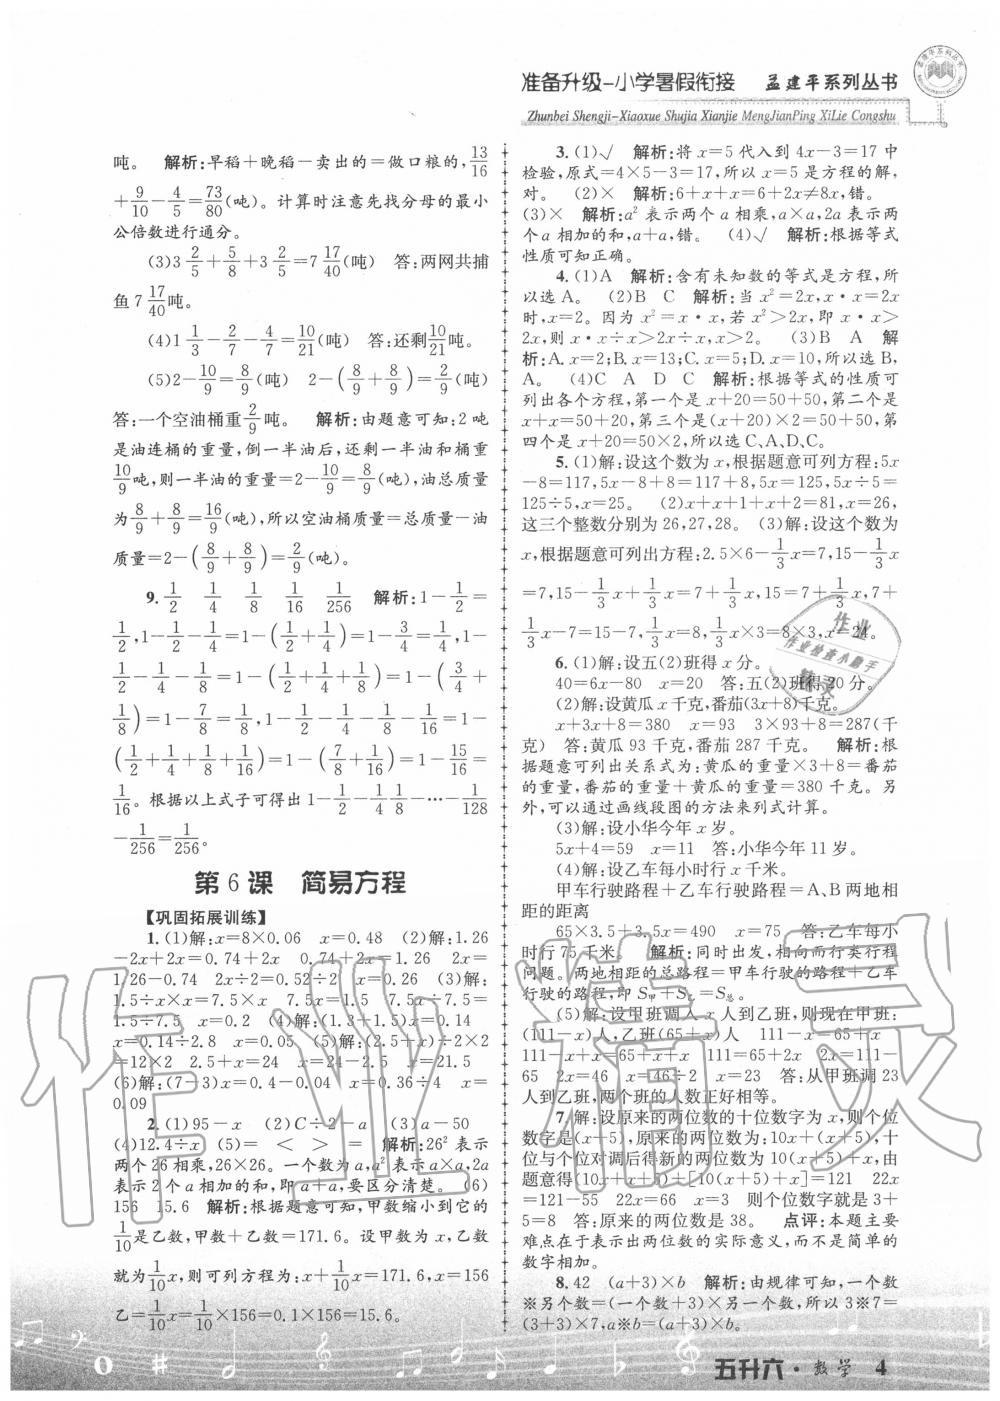 准备升级-小学暑假衔接 孟建平系列丛书
Zhunbei Shengji-Xiaoxue Shujia Xianjie MengJianPing XiLie Congshu
吨。 解析:早稻+晚稻-卖出的=做口粮的,13/16
+9/10-4/5=73/80(吨)。计算时注意先找分母的最小
公倍数进行通分。
(3)3 2/5+5/8+3 2/5=7 17/40(吨) 答:两网共捕
鱼7 17/40吨。
(4)1 1/3-2/7-4/7=10/21(吨) 答:还剩10/21吨。
(5)2-10/9=8/9(吨) 2-(8/9+8/9)=2/9(吨)
答:一个空油桶重2/9吨。 解析:由题意可知:2吨
是油连桶的重量,倒一半油后,还剩一半油和桶重
10/9吨,则一半油的重量=2-10/9=8/9(吨),油总质量
为8/9+8/9=16/9(吨),所以空油桶质量=总质量-油
质量=2-(8/9+8/9)=2/9(吨)
9.1/2 1/4 1/8 1/16 1/256 解析:1-1/2=
1/2,1-1/2-1/4=1-(1/2+1/4)=1-3/4=1/4,
1-1/2-1/4-1/8=1-(1/2+1/4+
1/8)=1-7/8=1/8,1-1/2-1/4-1/8-1/16=1-
(1/2+1/4+1/8+1/16)=1-(7/8+1/16)=1-15/16=
1/16。根据以上式子可得出1-1/2-1/4 1/8-…-1/128
-1/256=1/256。
第6课 简易方程
【巩固拓展训练】
1.(1)解:x=8×0.06 x=0.48 (2)解:1.26
-2x+2x=0.74+2x 0.74+2x=1.26 2x=
1.26-0.74 2x÷2=0.52÷2 x=0.26 (3)解:
1.5÷x×x=7.5×x 7.5x=1.5 7.5x÷7.5=
1.5÷7.5 x=0.2 (4)解:(1.3+1.5)x=0.14
x=0.14÷2.8 x=0.05 (5)解:(2.5+x)÷2×2
=12×2 2.5+x=24 x=24-2.5 x=21.5
(6)解:(7-3)x=0.36 4x=0.36 x=0.36÷4 x=
0.09
2.(1)95-x (2)C÷2-a (3)a-50
(4)12.4÷x (5)= < > = 解析:26²表示
两个26相乘,26×26。一个数为a,a²表示a×a,2a
表示2个a相加的和,即a+a,要区分清楚。 (6)
156 15.6 解析:根据题意可知,甲数缩小到它的
1/10是乙数,甲数+乙数=171.6。设甲数为x,乙数
就为1/10x,则可列方程为:x+1/10x=171.6,x=156
乙=1/10x=1/10×156=0.1×156=15.6。
3.(1)√ 解析:将x=5代入到4x-3=17中
检验,原式=4×5-3=17,所以x=5是方程的解,
对。 (2)× 解析:6+x+x=6+2x≠8x,错。
(3)× 解析:a²表示两个a相乘,a×a,2a表示两
个a相加的和,a+a,错。 (4)√ 解析:根据等式
性质可知正确。
4.(1)A 解析:含有未知数的等式是方程,所
以选A。 (2)B C 解析:当x²=2x,x·x=2x
时,x=2。因为x²=x·x,若x²>2x,即x·x>
2x,则x·x÷x>2x÷x,x>2。 (3)B A 解
析:A.x=2;B.x=13;C.x=5;D.x=10,所以选B,
A。 (4)C A D C 解析:根据等式的性质可
列出各个方程,第一个是x+20=50+50,第二个是
x+x=50+20,第三个是(x+20)×2=50+50,第
四个是x+20=50×2,所以选C、A、D、C。
5.(1)解:设这个数为x,根据题意可列方程:5x
-8=117,5x-8+8=117+8,5x=125,5x÷5=
125÷5,x=25。 (2)x+x+1+x+2=81,x=26,
这三个整数分别为26,27,28。 (3)解:设这个数为
x,根据题意可列出方程:2.5×6-1/3x=7,15-1/3x
=7,15-1/3x+1/3x=7+1/3x,15=7+1/3x,7+
1/3x-7=15-7,1/3x=8,1/3x×3=8×3,x=24。
6.(1)解:设五(2)班得x分。
40=6x-80 x=20 答:五(2)班得20分。
(2)解:设黄瓜x千克,番茄(3x+8)千克。
x+3x+8=380 x=93 3×93+8=287(千
克) 答:黄瓜93千克,番茄287千克。 解析:根
据题意可列出关系式为:黄瓜的重量×3+8=番茄
的重量,番茄的重量+黄瓜的重量=380千克。另
外,可以通过画线段图的方法来列式计算。
(3)解:设小华今年x岁。
5x+4=59 x=11 答:小华今年11岁。
(4)解:设乙车每小时行x千米。
甲车行驶路程+乙车行驶路程=A、B两地相
距的距离
65×3.5+3.5x=490 x=75 答:乙车每小
时行75千米。 解析:同时出发,相向而行类行程
问题。两地相距的总路程=甲车行驶的路程+乙车
行驶的路程,即S甲+S乙=S总。
(5)解:设甲班调入x人到乙班,则现在甲班:
(111-x)人,乙班(65+x)人 111-x=65+x
111-x+x=65+x+x 111=65+2x 2x=111-
65 2x=46 x=46÷2 x=23 答:从甲班调23
人到乙班,两个班的人数正好相等。
7.解:设原来的两位数的十位数字为x,则个位
数字是(x+5),原来的两位数为:10x+(x+5),十
位与个位对调后得新的两位数为10(x+5)+x,由
题意得(10x+x+5)+[10(x+5)+x]=121 22x
=121-55 22x=66 x=3 则个位数字就是3+
5=8 答:原来的两位数是38。 点评:本题主要
难点在于表示出两位数的实际意义,而不是单纯的
数字相加。
8.42 (a+3)×b 解析:由规律可知,一个数
※另个数=(一个数+3)×另一个数,所以3※7=
(3+3)×7,a※b=(a+3)×b。
作业
作业检查小助手
精灵
作业精灵
五升六·数学 4